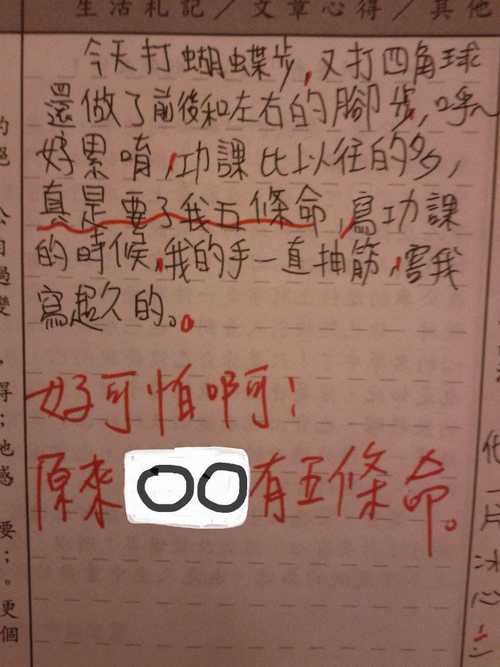 生活札記／文章心得／其他
今天打蝴蝶步,又打四角球
還做了前後和左右的腳步,呼~
好累唷,功課比以往的多,
真是要了我五條命,寫功課
的時候,我的手一直抽筋,害我
寫超久的。
好可怕啊!
原來○○有五條命。